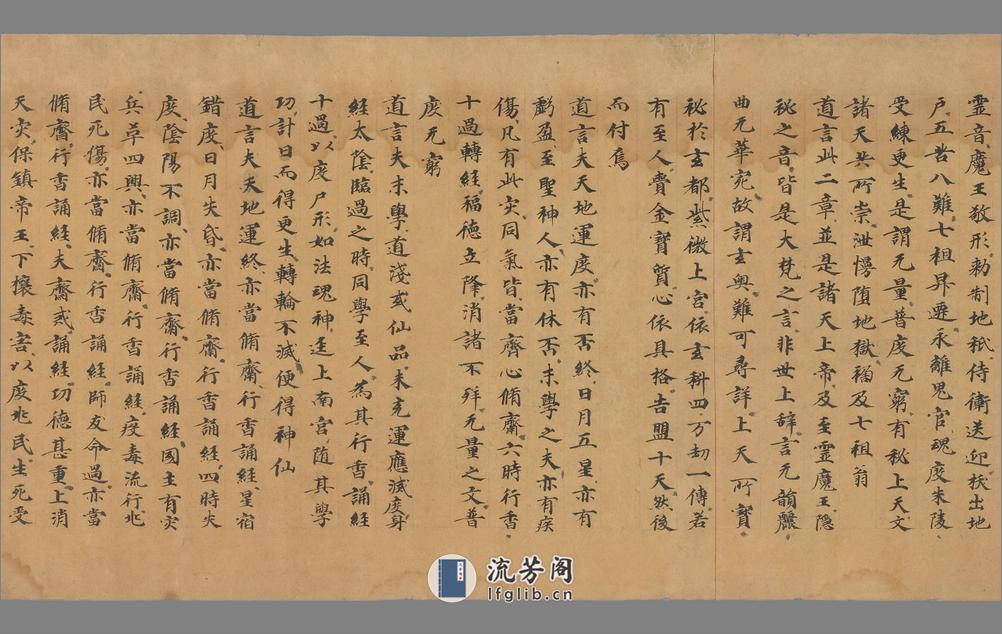 靈音魔王敬形勑制地祇侍衛送迎拔出地
户五苦八難七祖昇遷永離鬼官魂度朱陵
受練更生是謂无量普度无窮有秘上天文
諸天共所崇泄慢墮地獄禍及七祖翁
道言此二章並是諸天上帝及至靈魔王隱
秘之音皆是大梵之言非世上辞言无韻麗
曲无華宛故謂玄奥難可尋詳上天所寳
秘於玄都紫微上宮依玄科四万劫一傳若
有至人賷金寳質心依具格告盟十天然後
而付焉
道言夫天地運度亦有否終日月五星亦有
虧盈至聖神人亦有休否末學之夫亦有疾
傷凡有此灾同氣皆當齊心脩齋六時行香
十過轉經福德立降消諸不祥无量之文普
度无窮
道言夫末學道淺或仙品未充運應滅度身
經太陰臨過之時同學至人為其行香誦經
十過以度尸形如法魂神逕上南宮隨其學
功計日而得更生轉輪不滅便得神仙
道言夫天地運終亦當脩齋行香誦經星宿
錯度日月失昏亦當脩齋行香誦經四時失
度陰陽不調亦當脩齋行香誦經國主有灾
兵革四興亦當脩齋行香誦經疫毒流行兆
民死傷亦當脩齋行香誦經師友命過亦當
脩齋行香誦經夫齋戒誦經功德甚重上消
天灾保鎮帝王下禳毒害以度兆民生死受
流芳阁
lfglib.cn